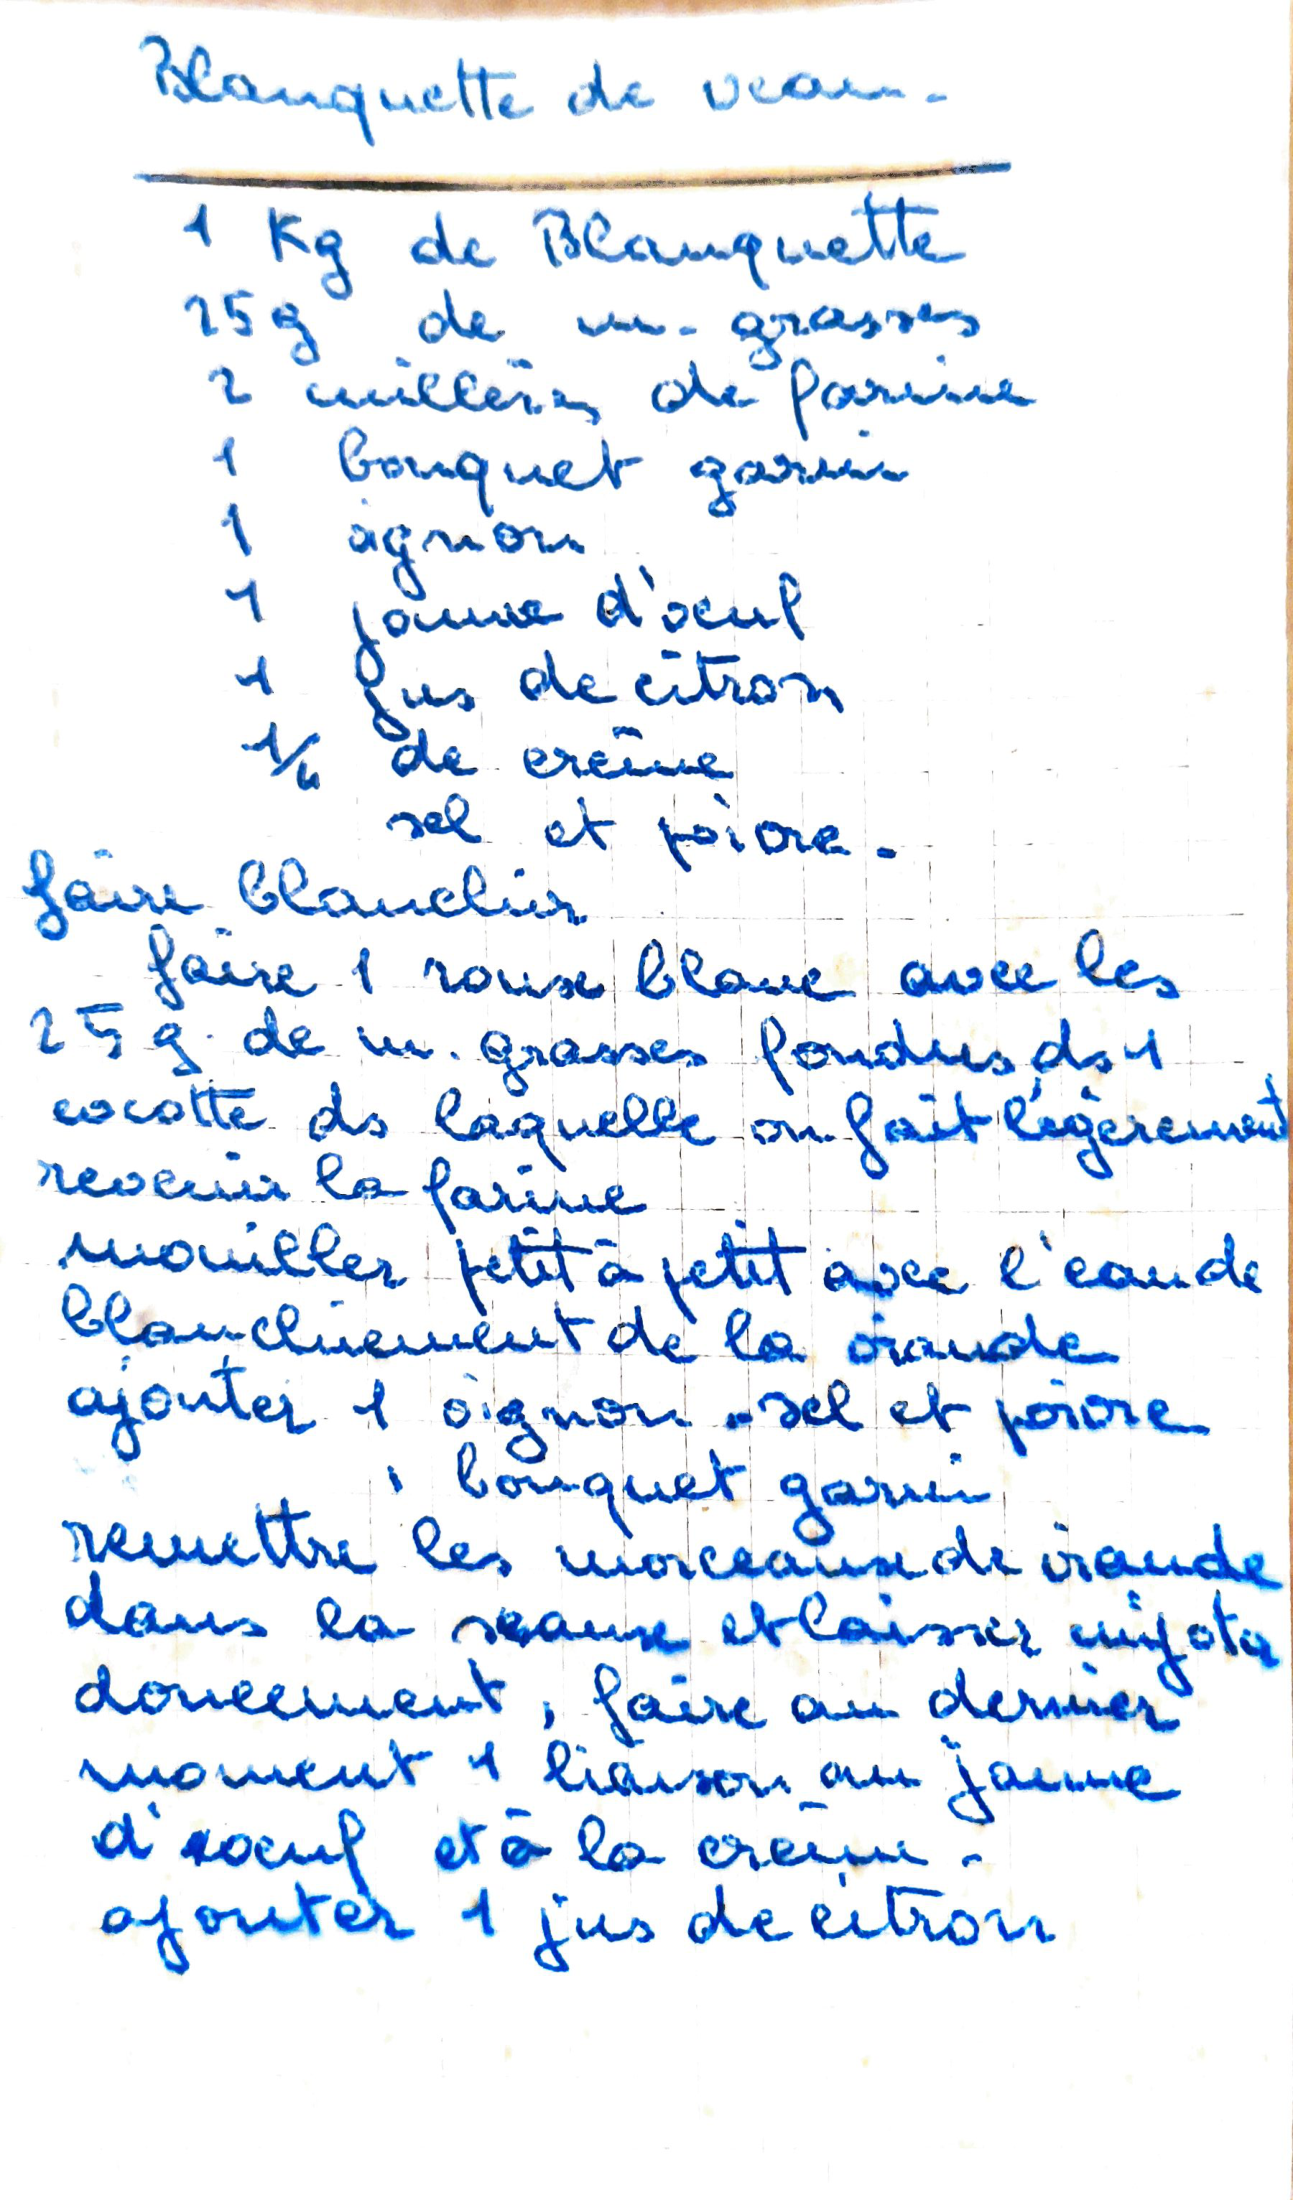 Blanquette de veau.
1 Kg de Blanquette
25g de m. grasses
2 cuillères de farine
1 bouquet garni
1 oignon
1 jaune d'oeuf
1 jus de citron
1/4 de crème
sel et poivre.
faire blanchir
faire 1 roux blanc avec les
25 g. de m. grasses fondues ds 1
cocotte ds laquelle on fait légèrement
revenir la farine
mouiller petit à petit avec l'eau de
blanchiement de la viande
ajouter 1 oignon. sel et poivre
1 bouquet garni
remettre les morceaux de viande
dans la sauce et laisser mijoter
doucement, faire au dernier
moment 1 liaison au jaune
d'oeuf et à la crème.
ajouter 1 jus de citron